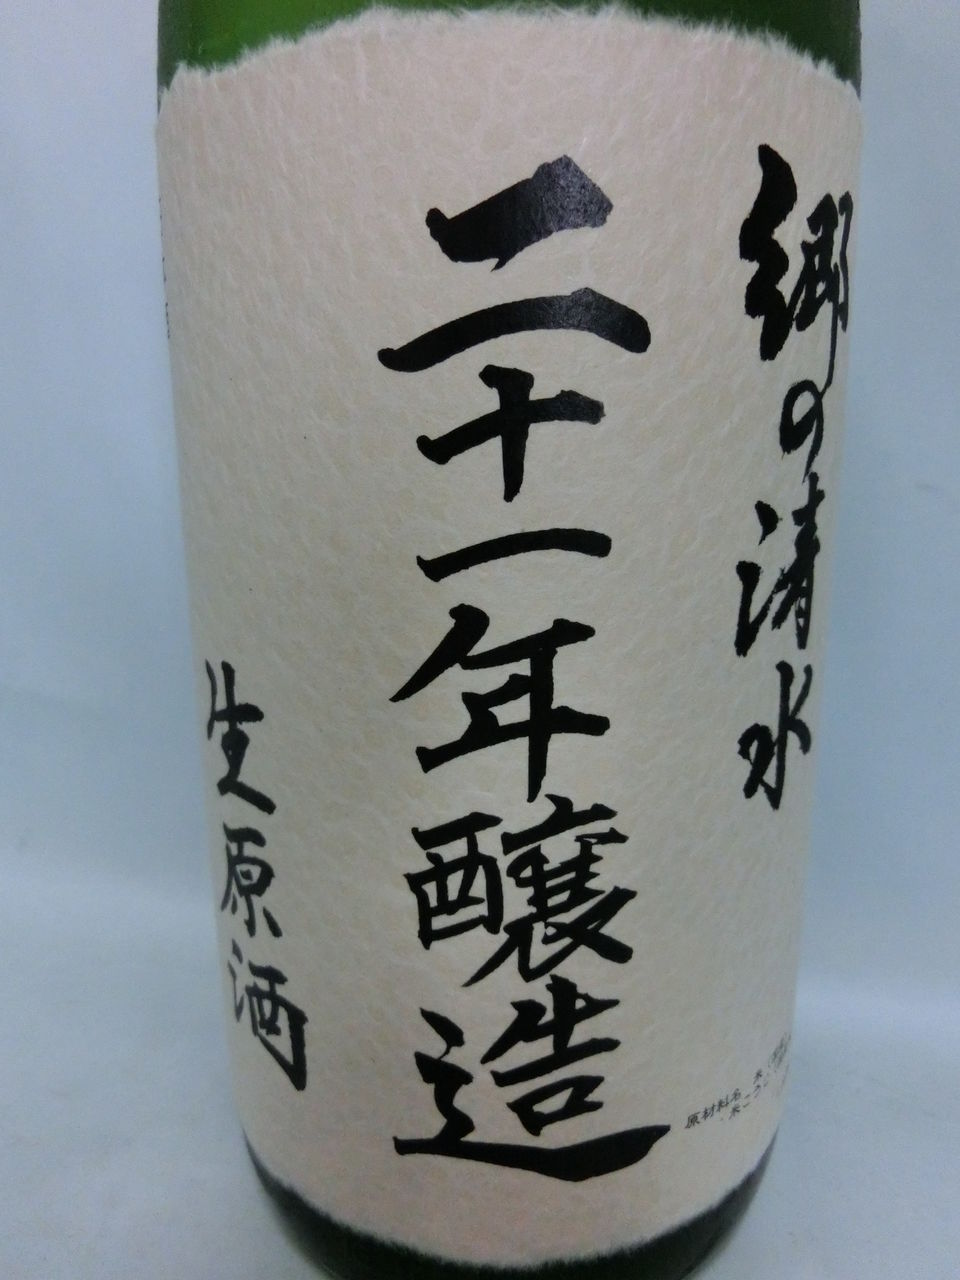 郷の清水
二十一年醸造
生原酒
原材料名 米
・米こうじ